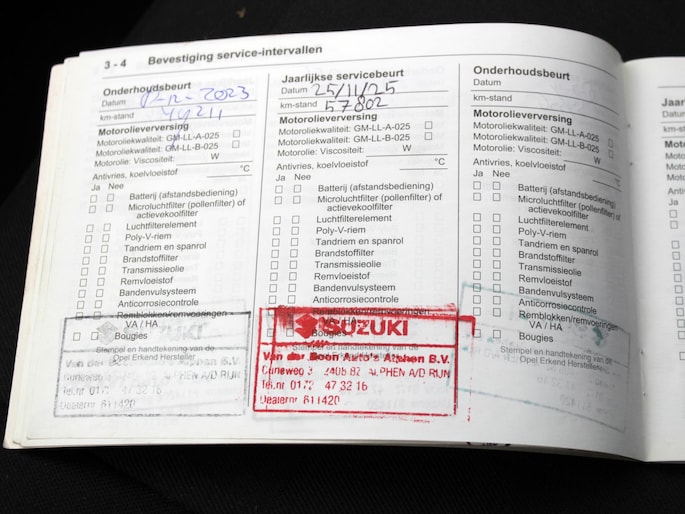 3 - 4 Bevestiging service-intervallen
Onderhoudsbeurt
Datum 2023
km-stand
Motorolieverversing
Motoroliekwaliteit: GM-LL-A-025
Motoroliekwaliteit: GM-LL-B-025
Motorolie: Viscositeit: W
Antivries, koelvloeistof °C
Ja Nee
Batterij (afstandsbediening)
Microluchtfilter (pollenfilter) of
actievekoolfilter
Luchtfilterelement
Poly-V-riem
Tandriem en spanrol
Brandstoffilter
Transmissieolie
Remvloeistof
Bandenvulsysteem
Anticorrosiecontrole
Remblokken/remvoeringen
VA / HA
Bougies
Stempel en handtekening van de
Opel Erkend Hersteller
SUZUKI
Van der Boon Auto's Alphen B.V.
ALPHEN A/D RIJN
Tel.nr 0172 47 32 16
Dealernr 611420
Jaarlijkse servicebeurt
Datum 25/11/25
km-stand 57802
Motorolieverversing
Motoroliekwaliteit: GM-LL-A-025
Motoroliekwaliteit: GM-LL-B-025
Motorolie: Viscositeit: W
Antivries, koelvloeistof °C
Ja Nee
Batterij (afstandsbediening)
Microluchtfilter (pollenfilter) of
actievekoolfilter
Luchtfilterelement
Poly-V-riem
Tandriem en spanrol
Brandstoffilter
Transmissieolie
Remvloeistof
Bandenvulsysteem
Anticorrosiecontrole
Remblokken/remvoeringen
VA / HA
Bougies
SUZUKI
Van der Boon Auto's Alphen B.V.
ALPHEN A/D RIJN
Tel.nr 0172 47 32 16
Dealernr 611420
Onderhoudsbeurt
Datum
km-stand
Motorolieverversing
Motoroliekwaliteit: GM-LL-A-025
Motoroliekwaliteit: GM-LL-B-025
Motorolie: Viscositeit: W
Antivries, koelvloeistof °C
Ja Nee
Batterij (afstandsbediening)
Microluchtfilter (pollenfilter) of
actievekoolfilter
Luchtfilterelement
Poly-V-riem
Tandriem en spanrol
Brandstoffilter
Transmissieolie
Remvloeistof
Bandenvulsysteem
Anticorrosiecontrole
Remblokken/remvoeringen
VA / HA
Bougies
Stempel en handtekening van de
Opel Erkend Hersteller
Datum
km-stand
Ja